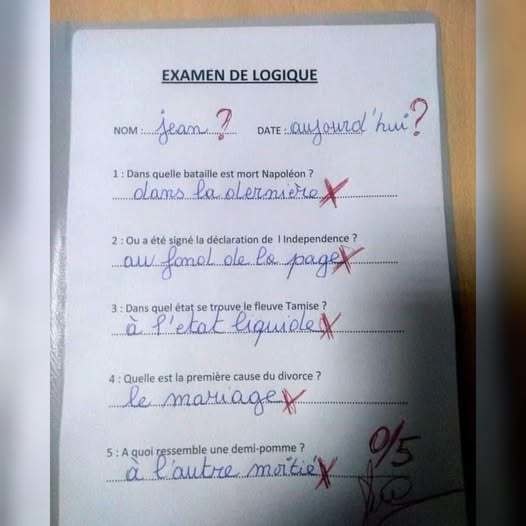 EXAMEN DE LOGIQUE
NOM : jean ? DATE : aujourd'hui ?
1 : Dans quelle bataille est mort Napoléon ?
dans la dernière X
2 : Ou a été signé la déclaration de l Independence ?
au fond de la page X
3 : Dans quel état se trouve le fleuve Tamise ?
à l'état liquide X
4 : Quelle est la première cause du divorce ?
le mariage X
5 : A quoi ressemble une demi-pomme ?
à l'autre moitié X
0/5